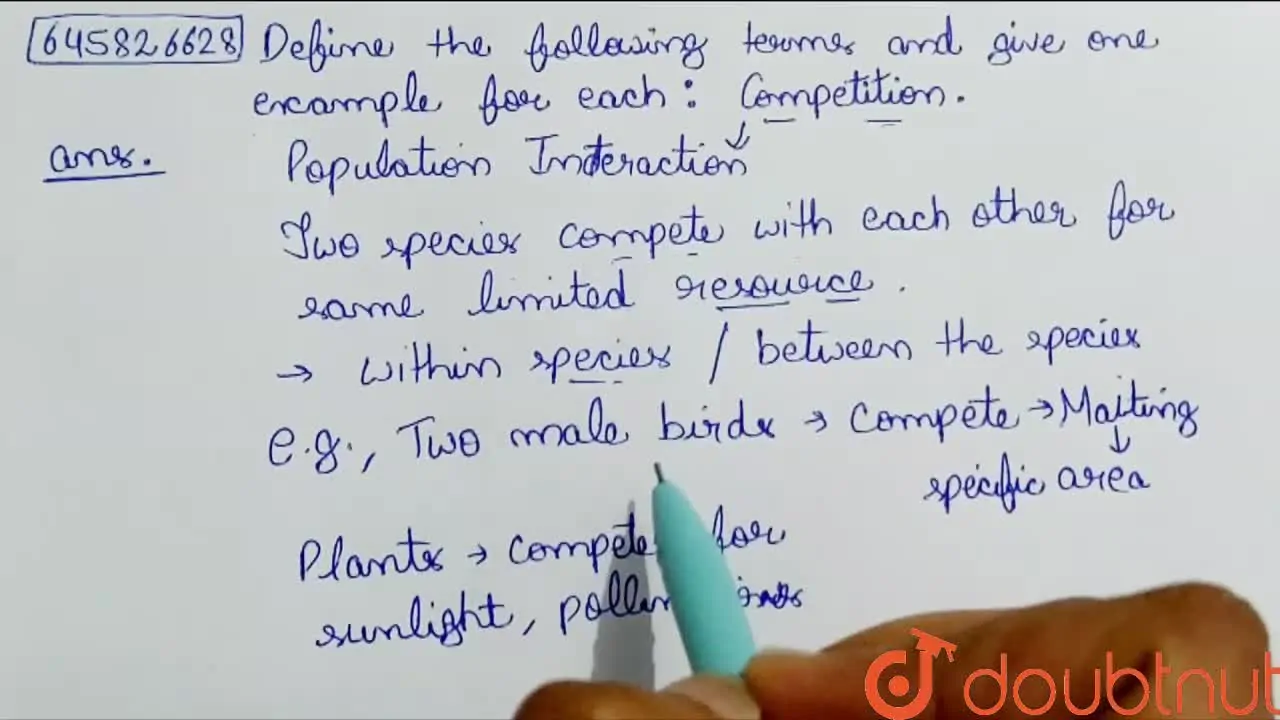 645826628 Define the following terms and give one
example for each: Competition.
ans. Population Interaction
Two species compete with each other for
same limited resource.
→ within species / between the species
e.g., Two male birds → compete → Maiting
specific area
Plants → compete for
sunlight,
doubtnut